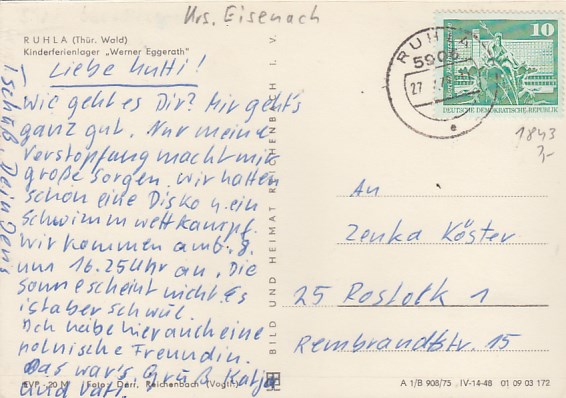 Krs. Eisenach
RUHLA (Thür. Wald)
Kinderferienlager „Werner Eggerath"
Liebe Mutti!
Wie geht es Dir? Mir geht's
ganz gut. Nur meine
Verstopfung macht mir
große Sorgen. Wir hatten
schon eine Disko u. ein
Schwimmwettkampf.
Wir kommen am 6. 8.
um 16.25 Uhr an. Die
Sonne scheint nicht. Es
ist aber schwül.
Ich habe hier auch eine
polnische Freundin.
Das war's. Gruß Katja
und Vati.
Tschüß Dein Jens
EVP -20 M Foto: Darr, Reichenbach (Vogtl.)
BILD UND HEIMAT REICHENBACH I. V.
RUHLA
5906
27
e
10
DEUTSCHE DEMOKRATISCHE REPUBLIK
1843
2,-
An
Zenka Köster
25 Rostock 1
Rembrandtstr. 15
A 1/B 908/75 IV-14-48 01 09 03 172